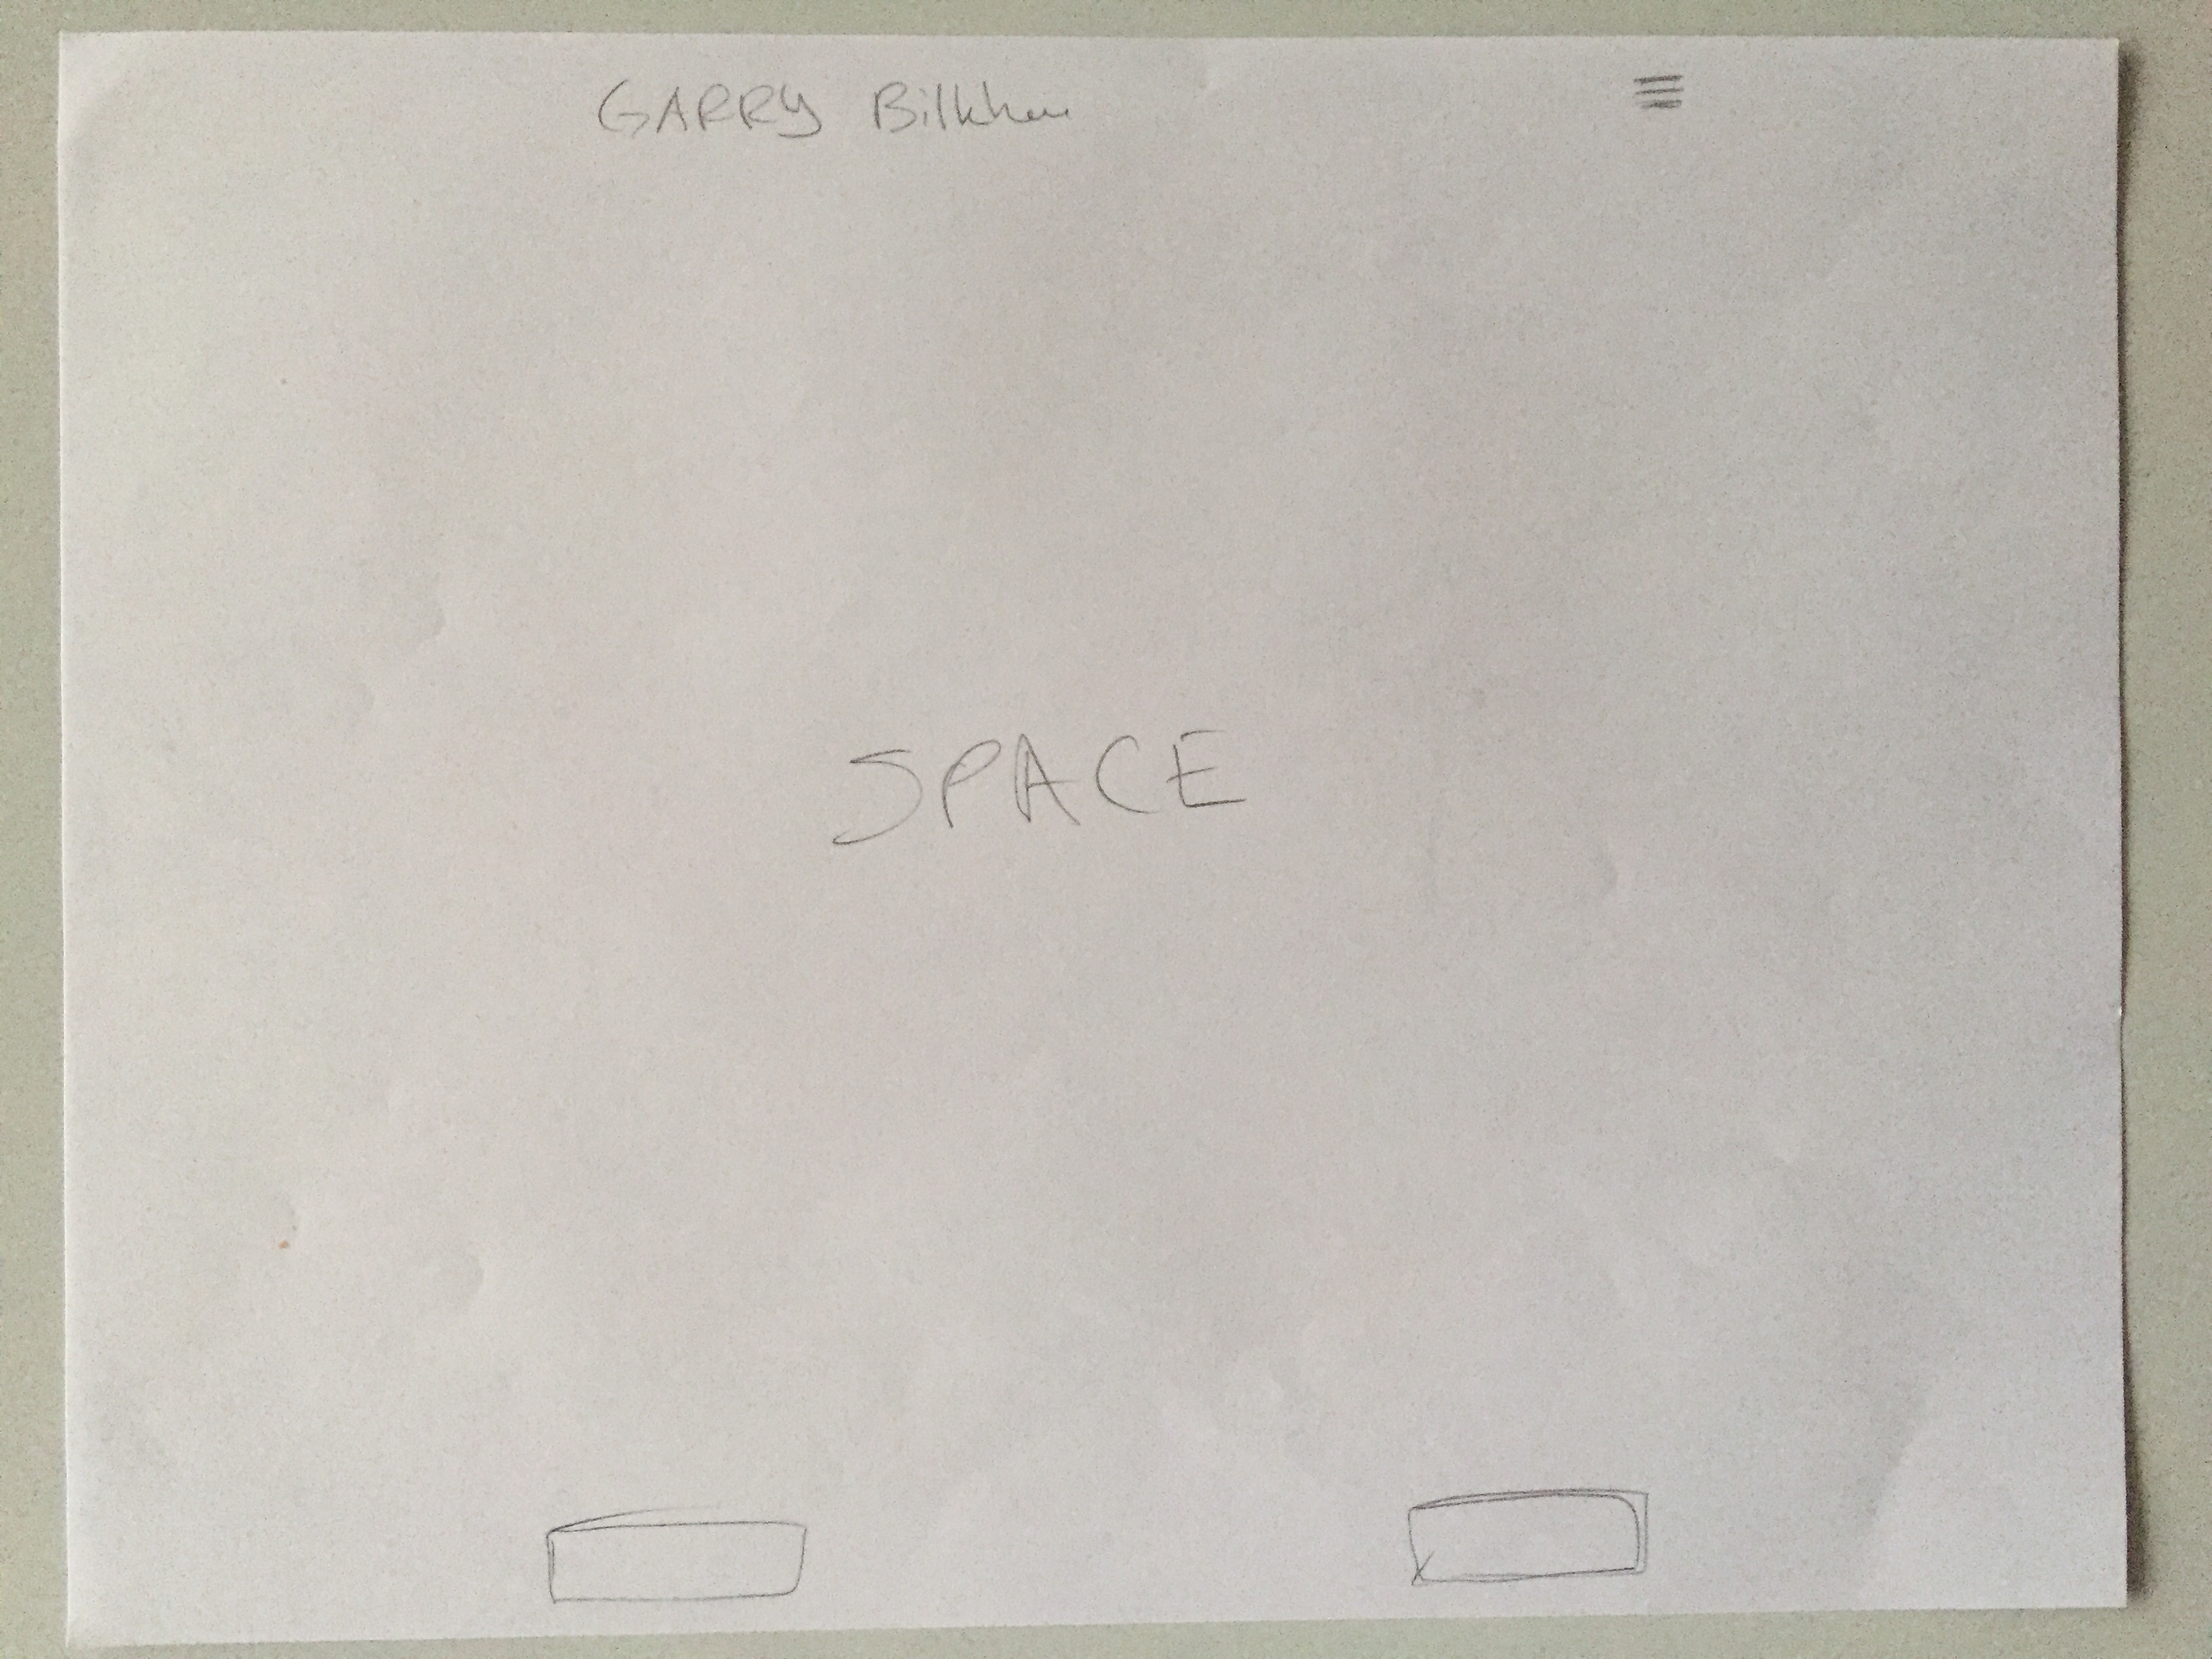 GARRY Bilkhu
SPACE